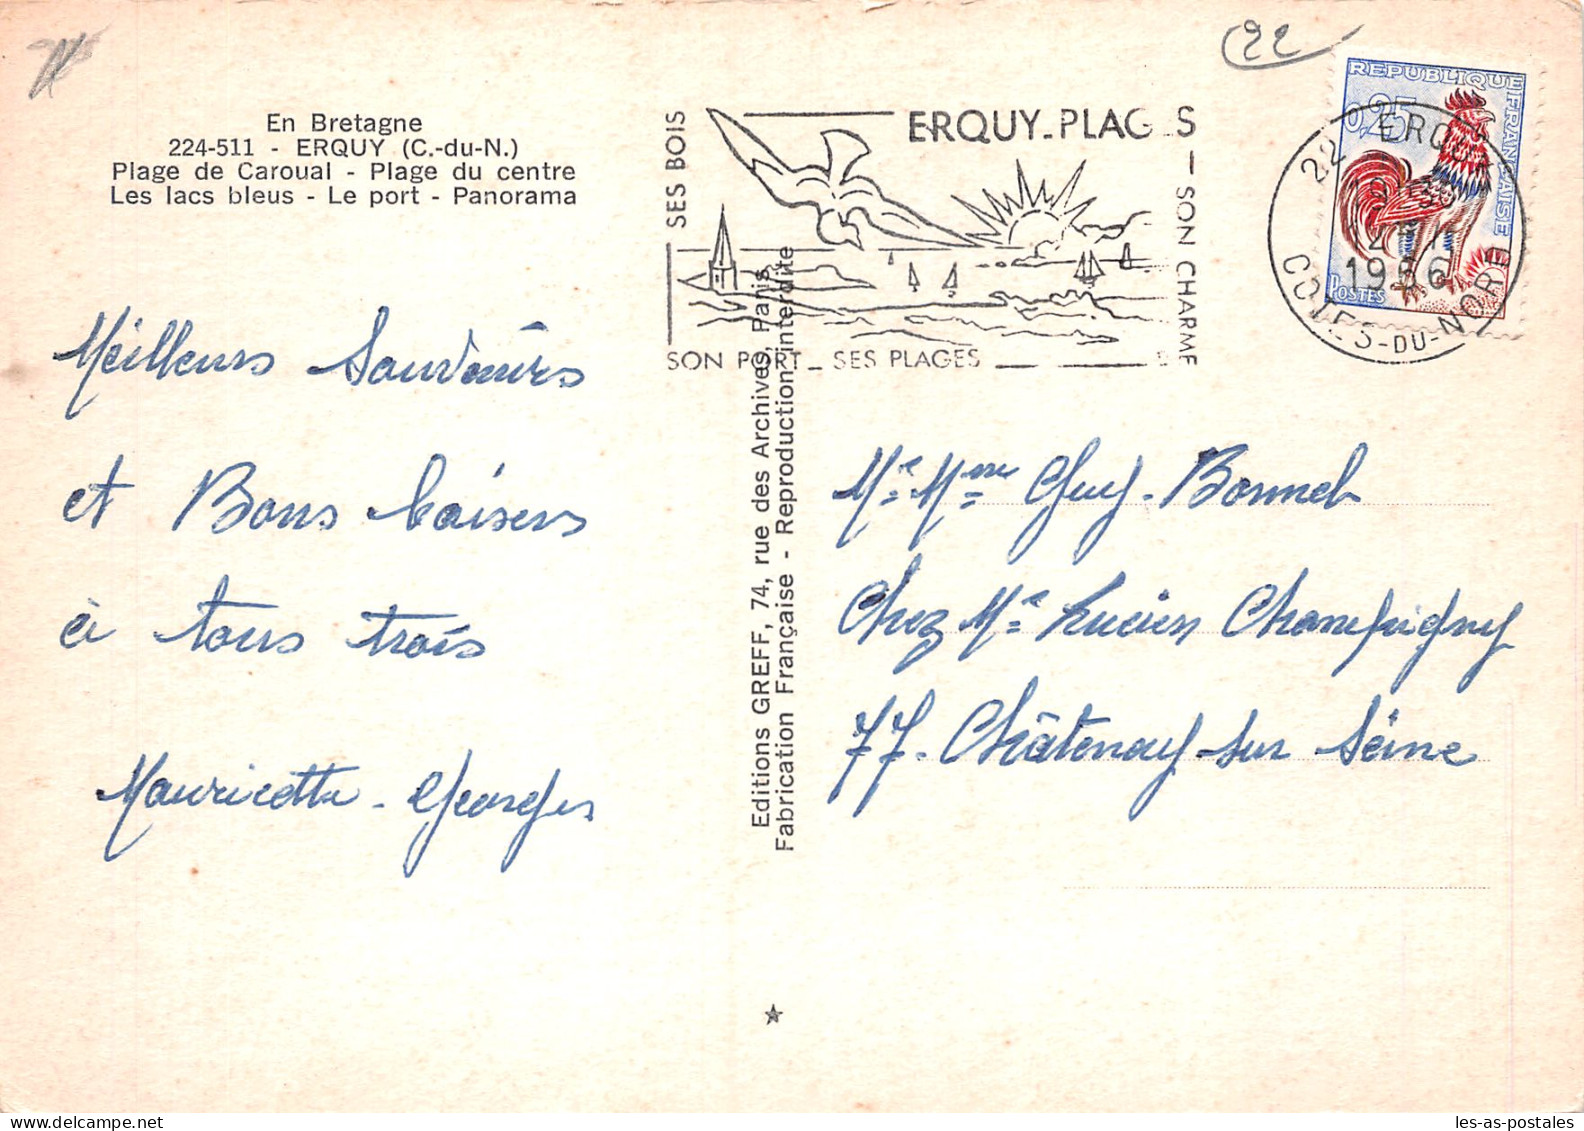 22
En Bretagne
224-511 - ERQUY (C.-du-N.)
Plage de Caroual - Plage du centre
Les lacs bleus - Le port - Panorama
ERQUY-PLAGES
SES BOIS
SON CHARME
SON PORT - SES PLAGES
REPUBLIQUE FRANÇAISE
0,25
POSTES
22 ERQUY
1966
COTES-DU-NORD
Meilleurs Souvenirs
et Bons baisers
à tous trois
Mauricette - Georges
Editions GREFF, 74, rue des Archives, Paris
Fabrication Française - Reproduction interdite
Mr Mme Guy Bonnel
Chez Mr Lucien Champigny
77. Châtenay-sur Seine
les-as-postales